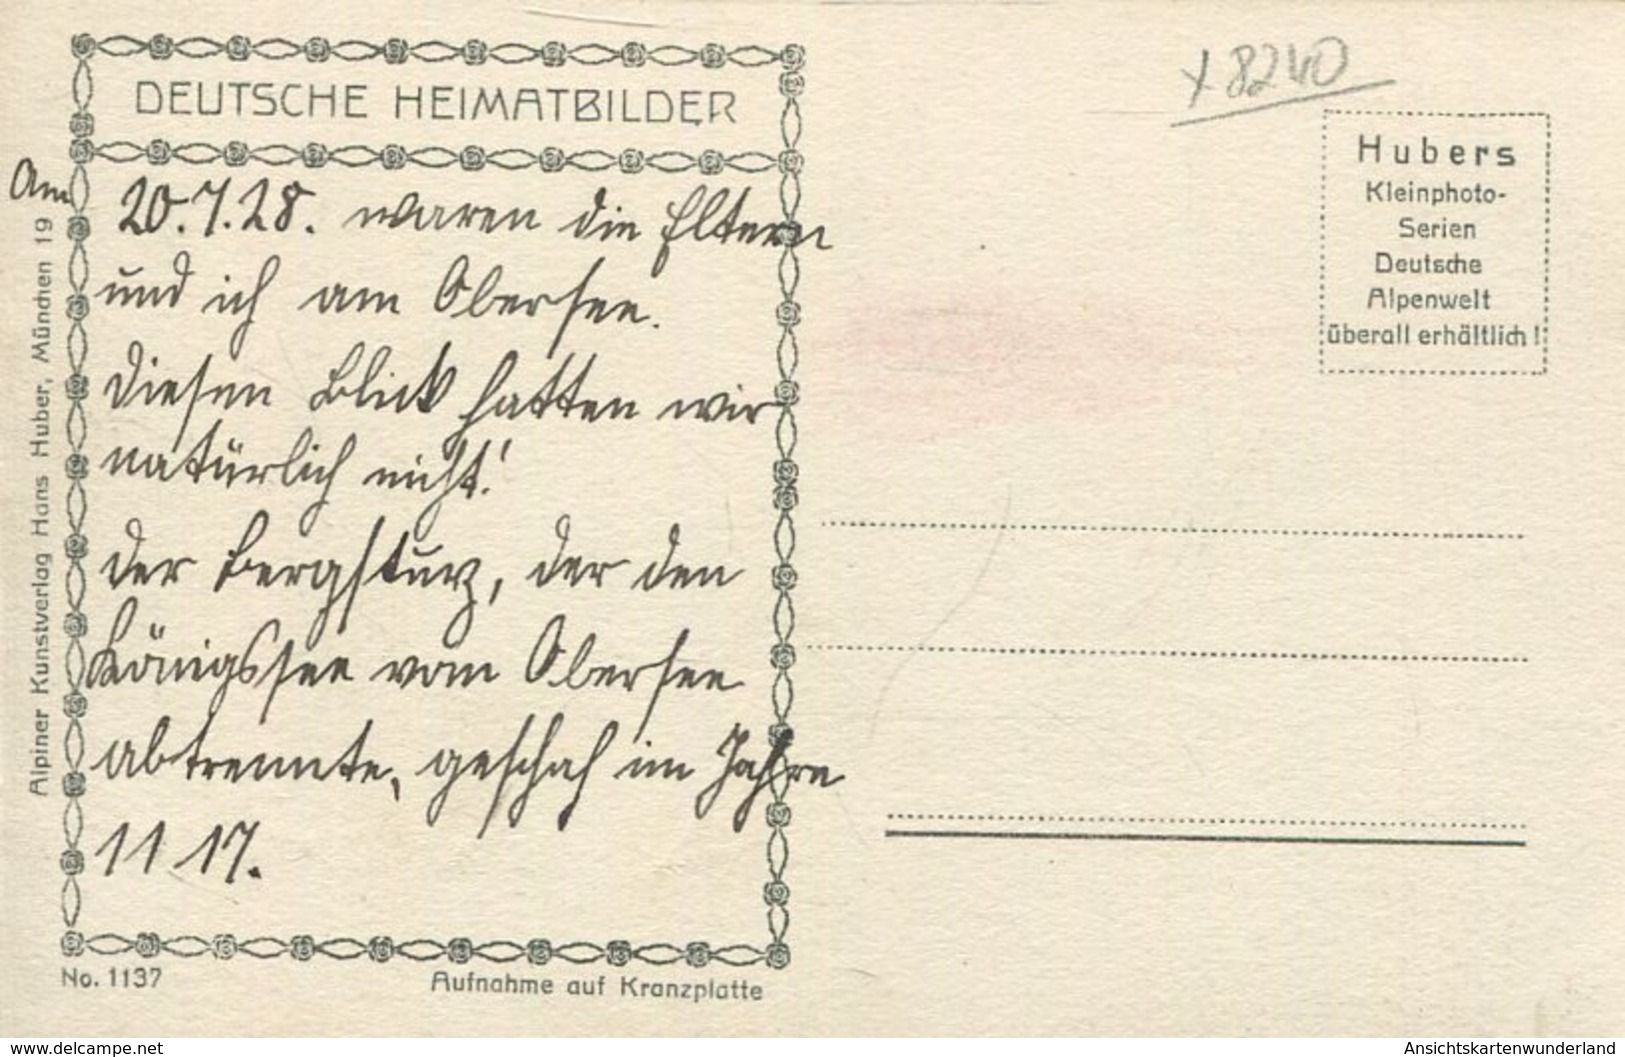 DEUTSCHE HEIMATBILDER
Am 20.7.28. waren die Eltern
und ich am Obersee.
Diesen Blick hatten wir
natürlich nicht!
Der Bergsturz, der den
Königssee vom Obersee
abtrennte, geschah im Jahre
1117.
No. 1137
Aufnahme auf Kranzplatte
Alpiner Kunstverlag Hans Huber, München 19
x 8240
Hubers
Kleinphoto-
Serien
Deutsche
Alpenwelt
überall erhältlich!
www.delcampe.net
Ansichtskartenwunderland